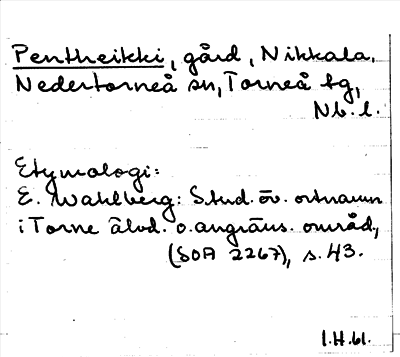 Pentheikki, gård, Nikkala,
Nedertorneå sn, Torneå tg,
Nb. l.
Etymologi:
E. Wahlberg: Stud. öv. ortnamn
i Torne älvd. o. angräns. områd,
(SOA 2267), s. 43.
I.H. 61.